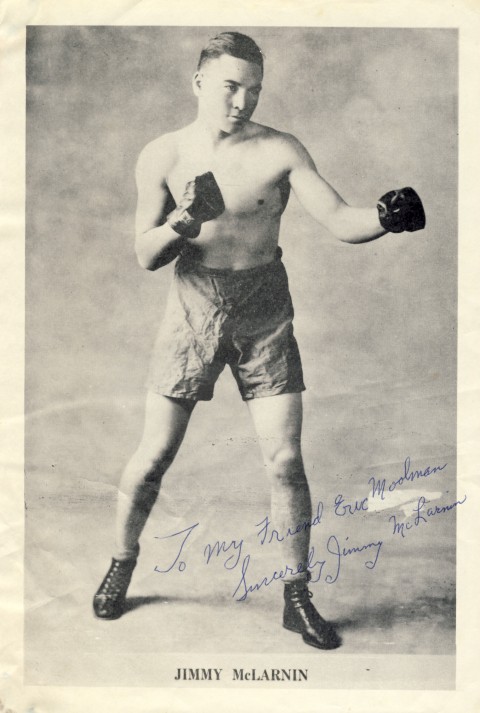 To My Friend Eric Moolman
Sincerely Jimmy McLarnin
JIMMY McLARNIN